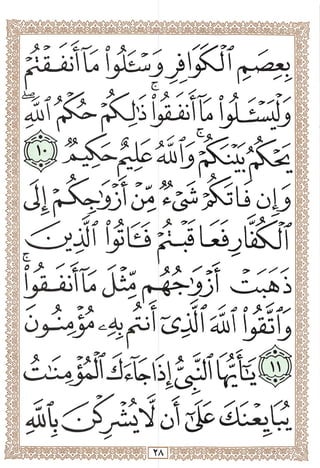 بِعِصَمِ ٱلْكَوَافِرِ وَسْـَٔلُوا۟ مَآ أَنفَقْتُمْ
وَلْيَسْـَٔلُوا۟ مَآ أَنفَقُوا۟ ۚ ذَٰلِكُمْ حُكْمُ ٱللَّهِ ۖ
يَحْكُمُ بَيْنَكُمْ ۚ وَٱللَّهُ عَلِيمٌ حَكِيمٌ ١٠
وَإِن فَاتَكُمْ شَىْءٌ مِّنْ أَزْوَٰجِكُمْ إِلَى
ٱلْكُفَّارِ فَعَاقَبْتُمْ فَـَٔاتُوا۟ ٱلَّذِينَ
ذَهَبَتْ أَزْوَٰجُهُم مِّثْلَ مَآ أَنفَقُوا۟ ۚ
وَٱتَّقُوا۟ ٱللَّهَ ٱلَّذِىٓ أَنتُم بِهِۦ مُؤْمِنُونَ
١١ يَـٰٓأَيُّهَا ٱلنَّبِىُّ إِذَا جَآءَكَ ٱلْمُؤْمِنَـٰتُ
يُبَايِعْنَكَ عَلَىٰٓ أَن لَّا يُشْرِكْنَ بِٱللَّهِ
٢٨